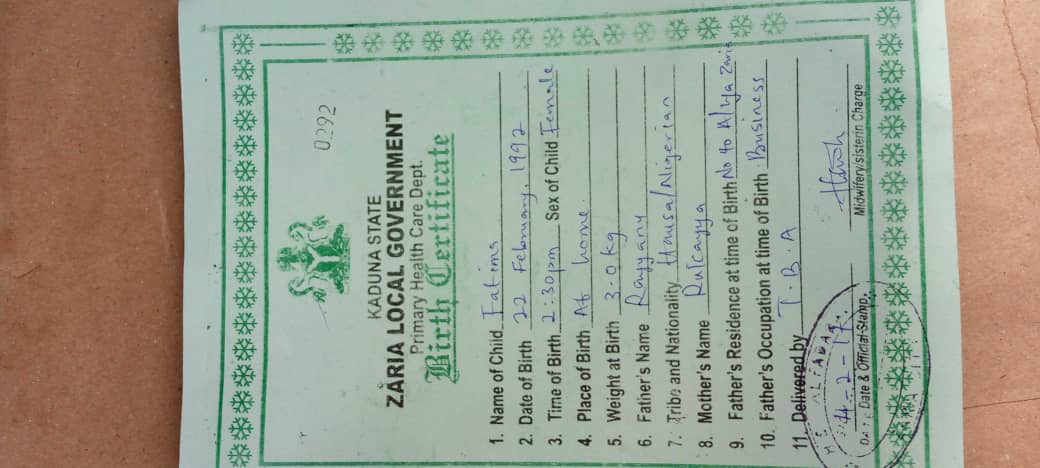 0292
KADUNA STATE
ZARIA LOCAL GOVERNMENT
Primary Health Care Dept.
Birth Certificate
1. Name of Child Fatima
2. Date of Birth 22 February, 1992
3. Time of Birth 2:30pm Sex of Child Female
4. Place of Birth At home
5. Weight at Birth 3.0kg
6. Father's Name Rayyanu
7. Tribe and Nationality Hausa/Nigerian
8. Mother's Name Rukayya
9. Father's Residence at time of Birth No 40 Zaria
10. Father's Occupation at time of Birth Business
11. Delivered by T.B.A
Date & Official Stamp.
Midwifery/sisterin Charge